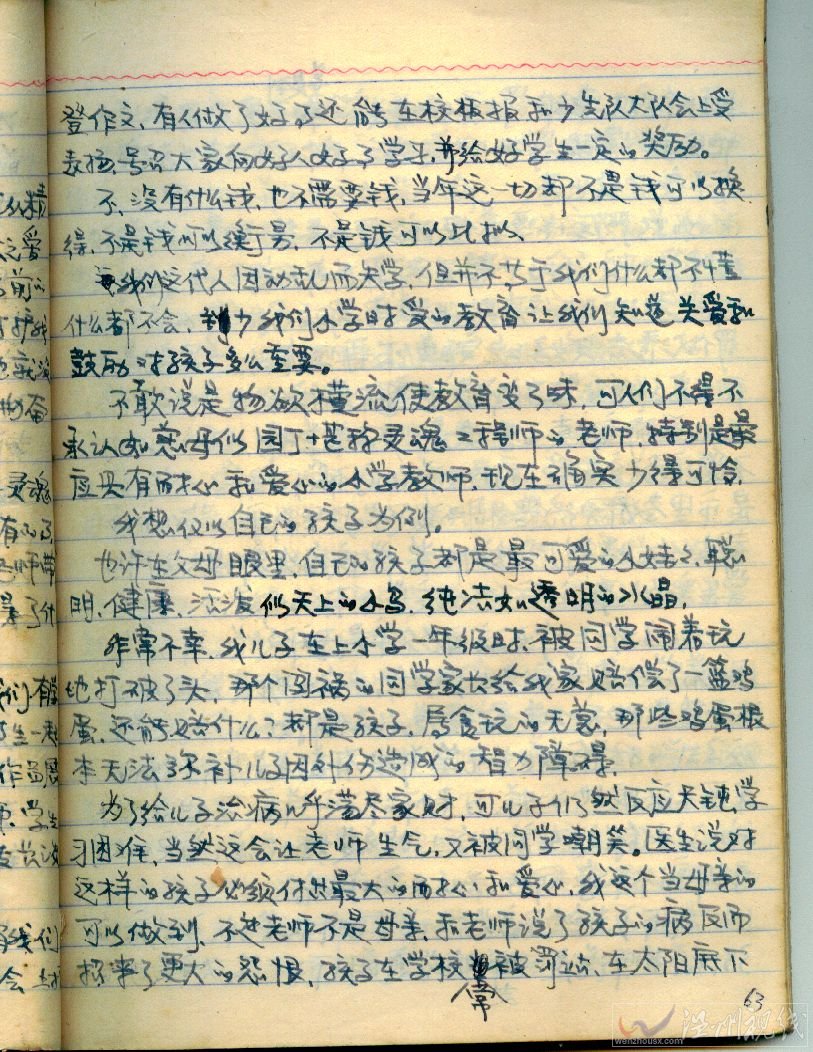 登作文、有人做了好事还能在校板报和少先队大队会上受
表扬、号召大家向好人好事学习，并给好学生一定的奖励。
不、没有什么钱，也不需要钱，当年这一切都不是钱可以换
得、不是钱可以衡量、不是钱可以比拟、
我们这代人因动乱而失学，但并不等于我们什么都不懂
什么都不会，至少我们小学时受的教育让我们知道关爱和
鼓励对孩子多么重要。
不敢说是物欲横流使教育变了味，可人们不得不
承认如慈母似园丁甚称灵魂工程师的老师，特别是最
应具有耐心和爱心的小学教师、现在确实少得可怜，
我想仅以自己的孩子为例。
也许在父母眼里，自己的孩子都是最可爱的小，聪
明、健康、活泼似天上的小鸟、纯洁如透明的水晶，
非常不幸、我儿子在上小学一年级时、被同学闹着玩
地打破了头，那个闯祸的同学家长给我家赔偿了一篮鸡
蛋，还能赔什么？都是孩子，属贪玩的无意，那些鸡蛋根
本无法弥补儿子因外伤造成的智力障碍，
为了给儿子治病几乎荡尽家财，可儿子仍然反应失钝，学
习困难，当然这会让老师生气，又被同学嘲笑。医生说对
这样的孩子必须付出最大的耐心和爱心，我这个当母亲的
可以做到，不过老师不是母亲，和老师说了孩子的病反而
招来了更大的怨恨，孩子在学校常被罚站、在太阳底下
63
温州视线
wenzhousx.com